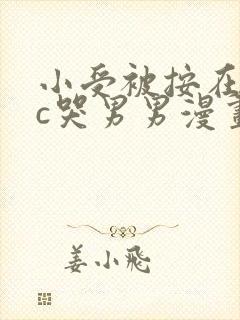 小受被按在
c哭男男漫畫
姜小飛